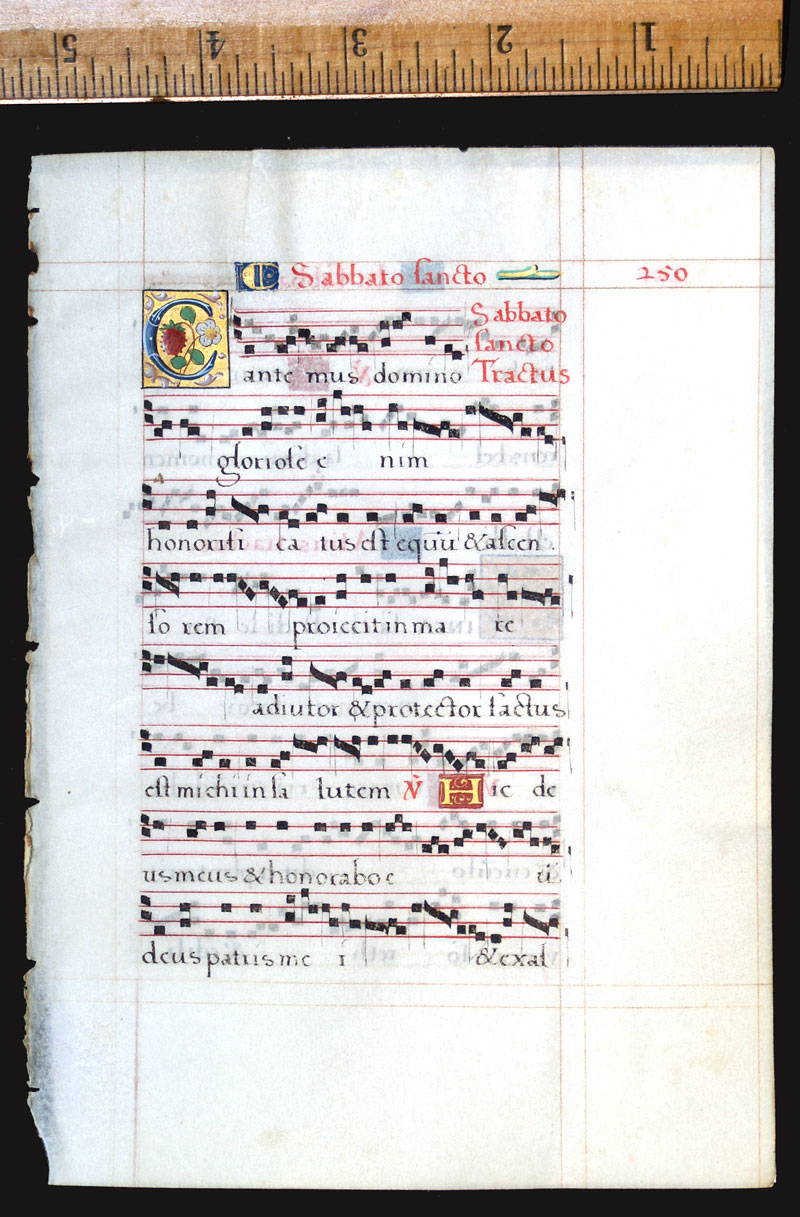 5 4 3 2 1
Sabbato sancto 250
Sabbato
sancto
Cante mus domino Tractus
gloriose e nim
honorifi ca tus est equū & ascen
so rem proiecit in ma re
adiutor & protector factus
est michi in sa lutem ℣ Hic de
us meus & honorabo e ū
deus patris me i & exal